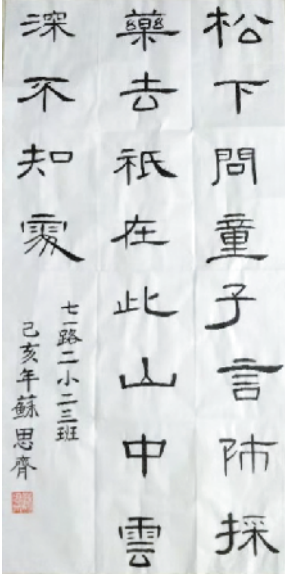 松下問童子言師採
藥去祇在此山中雲
深不知處
七一路二小二三班
己亥年蘇思齊